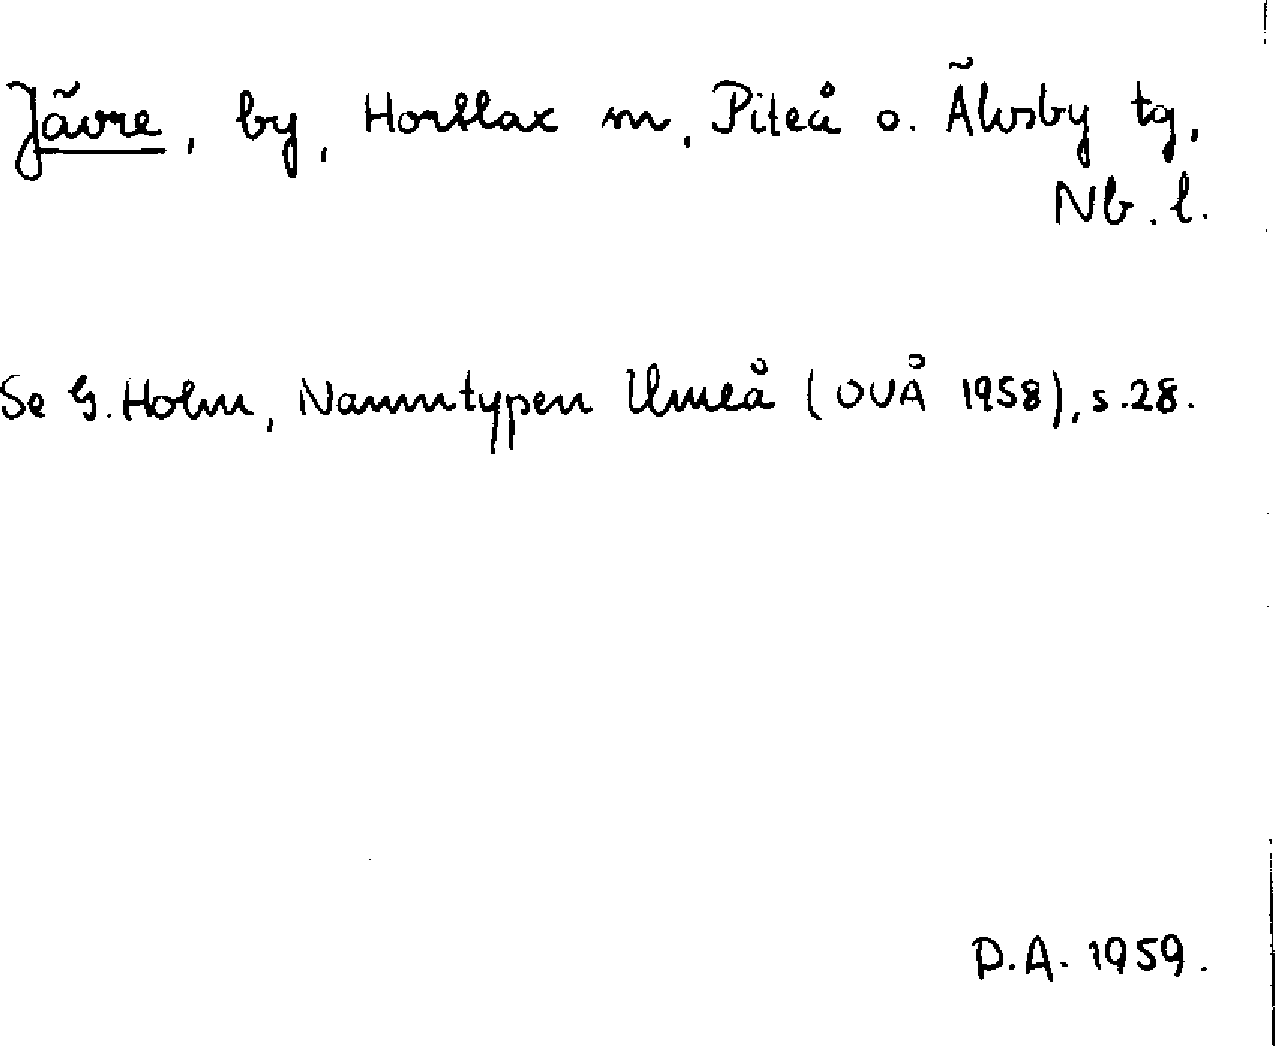 Jävre, by, Hortlax sn, Piteå o. Älvsby tg,
Nb. l.
Se G. Holm, Namntypen Umeå (OUÅ 1958), s. 28.
D.A. 1959.